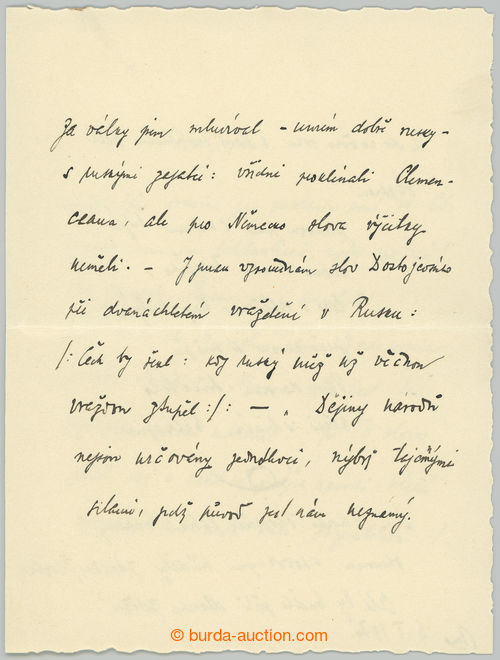 Za války jsem mluvíval – umím dobře rusky –
s ruskými zajatci: všichni proklínali Clemen-
ceaua, ale pro Německo slova výčitky
neměli. – J slov Dostojevského
při dvanáctiletém vraždění v Rusku:
/: Čech by řekl: kdy ruský nůž už věčnou
vraždou ztupěl :/: – „ Dějiny národů
nejsou určovány jednotlivci, nýbrž tajemnými
silami, jichž původ jest nám neznámý.
© burda-auction.com